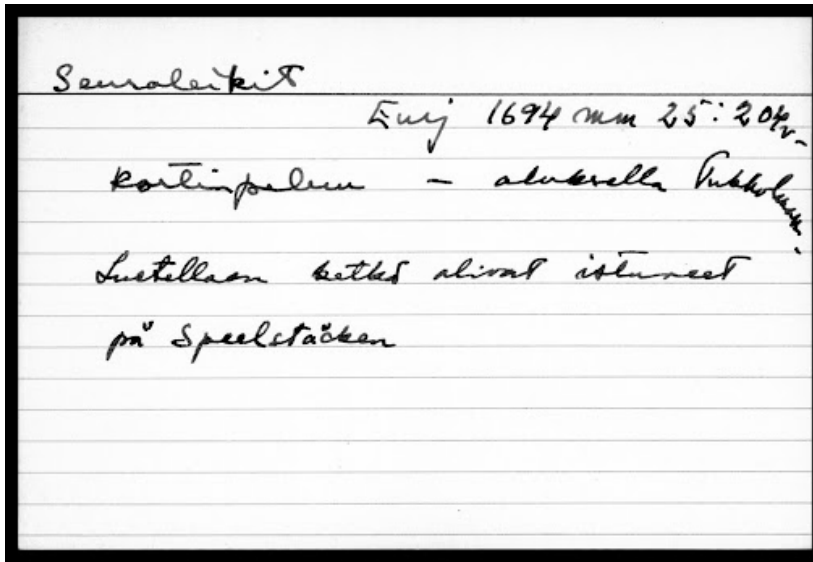 Seuraleikit
Eurj 1694 mm 25:204v-
kortinpeluu - aluksella Tukholmaan.
Luetellaan ketkä olivat istuneet
på Speelstäcken